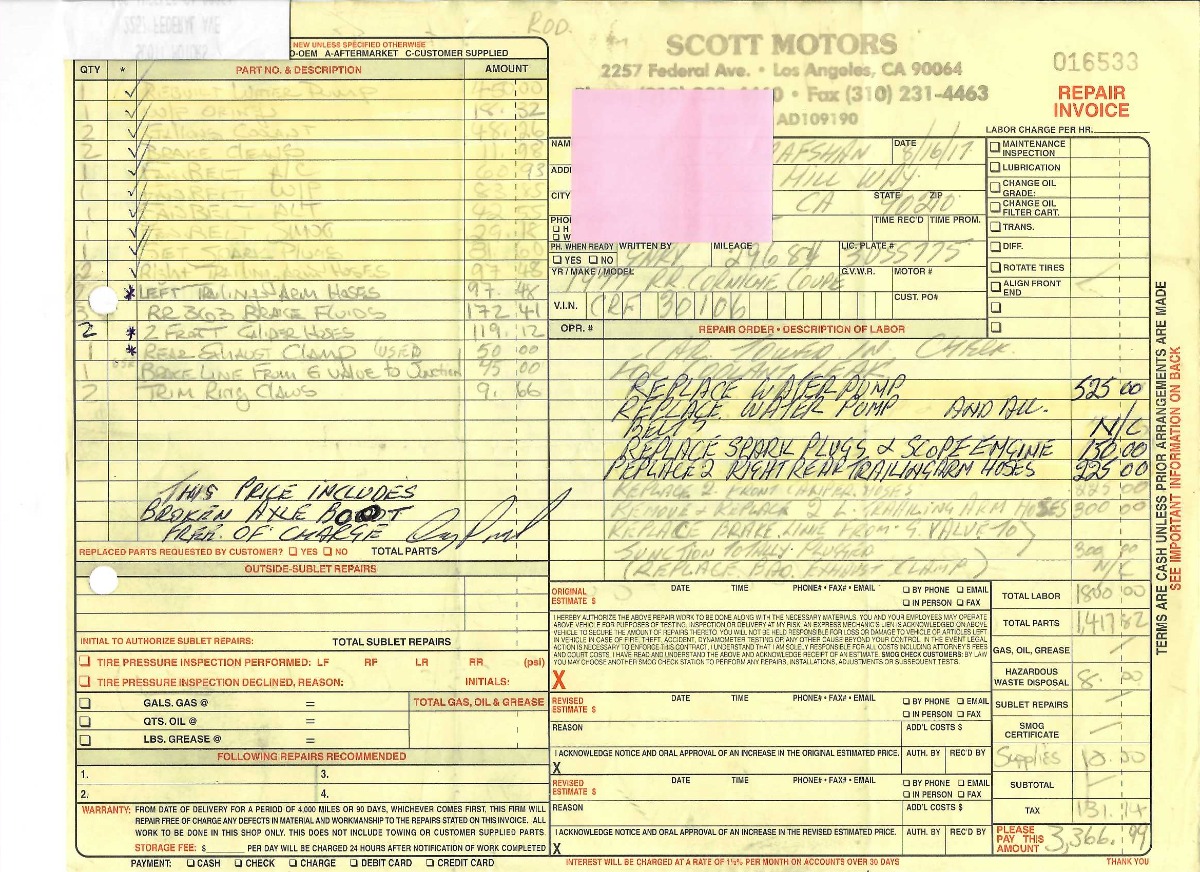 ROD.
NEW UNLESS SPECIFIED OTHERWISE
O-OEM A-AFTERMARKET C-CUSTOMER SUPPLIED
QTY * PART NO. & DESCRIPTION AMOUNT
1 REBUILT WATER PUMP 00
1 W/P 18.32
2 GALLONS COOLANT 48.26
2 BRAKE CLAWS 11.98
1 FAN BELT A/C 60.93
1 FAN BELT W/P 83.85
1 FAN BELT ALT
1 SMOG
1 SET SPARK PLUGS
2 RIGHT TRAILING ARM HOSES 97.48
* LEFT TRAILING ARM HOSES 97.48
3 RR 363 BRAKE FLUIDS 172.41
2 * 2 FRONT CALIPER HOSES 119.12
1 * REAR EXHAUST CLAMP (USED 50 00
1 BRAKE LINE FROM G VALVE TO JUNCTION 45 00
2 TRIM RING CLAWS 9.66
THIS PRICE INCLUDES
BROKEN AXLE BOOT
FREE OF CHARGE
REPLACED PARTS REQUESTED BY CUSTOMER? YES NO TOTAL PARTS
OUTSIDE-SUBLET REPAIRS
INITIAL TO AUTHORIZE SUBLET REPAIRS: TOTAL SUBLET REPAIRS
TIRE PRESSURE INSPECTION PERFORMED: LF RF LR RR (psi)
TIRE PRESSURE INSPECTION DECLINED, REASON: INITIALS:
GALS. GAS @ = TOTAL GAS, OIL & GREASE
QTS. OIL @ =
LBS. GREASE @ =
FOLLOWING REPAIRS RECOMMENDED
1. 3.
2. 4.
WARRANTY: FROM DATE OF DELIVERY FOR A PERIOD OF 4,000 MILES OR 90 DAYS, WHICHEVER COMES FIRST, THIS FIRM WILL
REPAIR FREE OF CHARGE ANY DEFECTS IN MATERIAL AND WORKMANSHIP TO THE REPAIRS STATED ON THIS INVOICE. ALL
WORK TO BE DONE IN THIS SHOP ONLY. THIS DOES NOT INCLUDE TOWING OR CUSTOMER SUPPLIED PARTS.
STORAGE FEE: $ PER DAY WILL BE CHARGED 24 HOURS AFTER NOTIFICATION OF WORK COMPLETED
PAYMENT: CASH CHECK CHARGE DEBIT CARD CREDIT CARD
SCOTT MOTORS
2257 Federal Ave. • Los Angeles, CA 90064
• Fax (310) 231-4463
AD109190
016533
REPAIR
INVOICE
LABOR CHARGE PER HR.
NAM AFSHAN DATE 8/16/17
ADD HILL WAY
CITY CA STATE ZIP 90210
PHO TIME REC'D TIME PROM.
H
W
PH. WHEN READY WRITTEN BY MILEAGE LIC. PLATE #
YES NO GARY 29684 3U55775
YR / MAKE / MODEL G.V.W.R. MOTOR #
1977 RR CORNICHE COUPE
V.I.N. CRF 30106 CUST. PO#
MAINTENANCE
INSPECTION
LUBRICATION
CHANGE OIL
GRADE:
CHANGE OIL
FILTER CART.
TRANS.
DIFF.
ROTATE TIRES
ALIGN FRONT
END
OPR. # REPAIR ORDER • DESCRIPTION OF LABOR
CAR TOWED IN. CHECK
FOR
REPLACE WATER PUMP 525 00
REPLACE WATER PUMP AND ALL.
BELTS N/C
REPLACE SPARK PLUGS & SCOPE ENGINE 150 00
REPLACE 2 RIGHT REAR TRAILING ARM HOSES 225 00
REPLACE 2 FRONT CALIPER HOSES 225 00
REMOVE & REPLACE 2 L. TRAILING ARM HOSES 300 00
REPLACE BRAKE LINE FROM G. VALVE TO
JUNCTION TOTALLY PLUGGED 300 00
(REPLACE BAD EXHAUST CLAMP) N/C
ORIGINAL
ESTIMATE $ DATE TIME PHONE# • FAX# • EMAIL BY PHONE EMAIL
IN PERSON FAX
I HEREBY AUTHORIZE THE ABOVE REPAIR WORK TO BE DONE ALONG WITH THE NECESSARY MATERIALS. YOU AND YOUR EMPLOYEES MAY OPERATE
ABOVE VEHICLE FOR PURPOSES OF TESTING, INSPECTION OR DELIVERY AT MY RISK. AN EXPRESS MECHANIC'S LIEN IS ACKNOWLEDGED ON ABOVE
VEHICLE TO SECURE THE AMOUNT OF REPAIRS THERETO. YOU WILL NOT BE HELD RESPONSIBLE FOR LOSS OR DAMAGE TO VEHICLE OR ARTICLES LEFT
IN VEHICLE IN CASE OF FIRE, THEFT, ACCIDENT, DYNAMOMETER TESTING OR ANY OTHER CAUSE BEYOND YOUR CONTROL. IN THE EVENT LEGAL
ACTION IS NECESSARY TO ENFORCE THIS CONTRACT, I UNDERSTAND THAT I AM SOLELY RESPONSIBLE FOR ALL COSTS INCLUDING ATTORNEY'S FEES
AND COURT COSTS. I HAVE READ AND UNDERSTAND THE ABOVE AND ACKNOWLEDGE RECEIPT OF AN ESTIMATE. SMOG CHECK CUSTOMERS: BY LAW
YOU MAY CHOOSE ANOTHER SMOG CHECK STATION TO PERFORM ANY REPAIRS, INSTALLATIONS, ADJUSTMENTS OR SUBSEQUENT TESTS.
X
REVISED
ESTIMATE $ DATE TIME PHONE# • FAX# • EMAIL BY PHONE EMAIL
IN PERSON FAX
REASON ADD'L COSTS $
I ACKNOWLEDGE NOTICE AND ORAL APPROVAL OF AN INCREASE IN THE ORIGINAL ESTIMATED PRICE. AUTH. BY REC'D BY
X
REVISED
ESTIMATE $ DATE TIME PHONE# • FAX# • EMAIL BY PHONE EMAIL
IN PERSON FAX
REASON ADD'L COSTS $
I ACKNOWLEDGE NOTICE AND ORAL APPROVAL OF AN INCREASE IN THE REVISED ESTIMATED PRICE. AUTH. BY REC'D BY
X
TOTAL LABOR 1800 00
TOTAL PARTS 1,417 82
GAS, OIL, GREASE
HAZARDOUS
WASTE DISPOSAL 8. 00
SUBLET REPAIRS
SMOG
CERTIFICATE
Supplies 10.00
SUBTOTAL
TAX 131.14
PLEASE
PAY THIS
AMOUNT 3,366.99
INTEREST WILL BE CHARGED AT A RATE OF 1½% PER MONTH ON ACCOUNTS OVER 30 DAYS
THANK YOU
TERMS ARE CASH UNLESS PRIOR ARRANGEMENTS ARE MADE
SEE IMPORTANT INFORMATION ON BACK